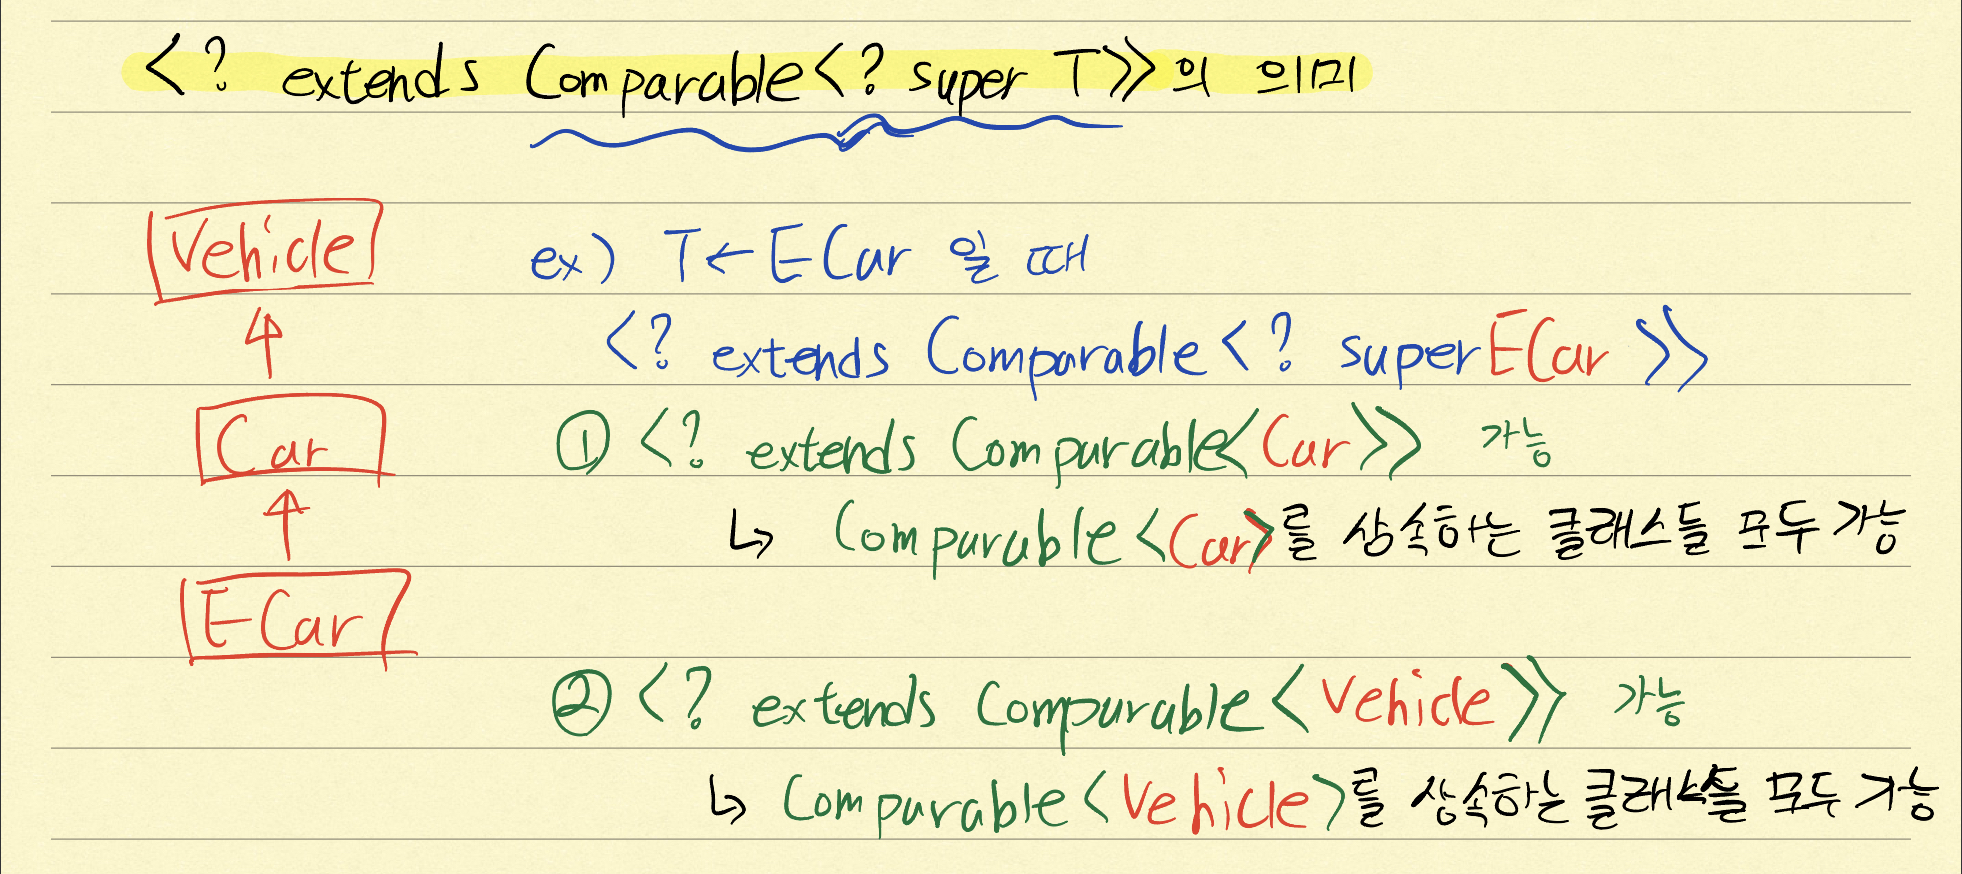 <? extends Comparable<? super T>>의 의미
Vehicle
ex) T←ECar 일 때
<? extends Comparable<? super ECar >>
Car
① <? extends Comparable<Car>> 가능
↳ Comparable<Car>를 상속하는 클래스들 모두 가능
E-Car
② <? extends Comparable<Vehicle>> 가능
↳ Comparable<Vehicle>를 상속하는 클래스들 모두 가능